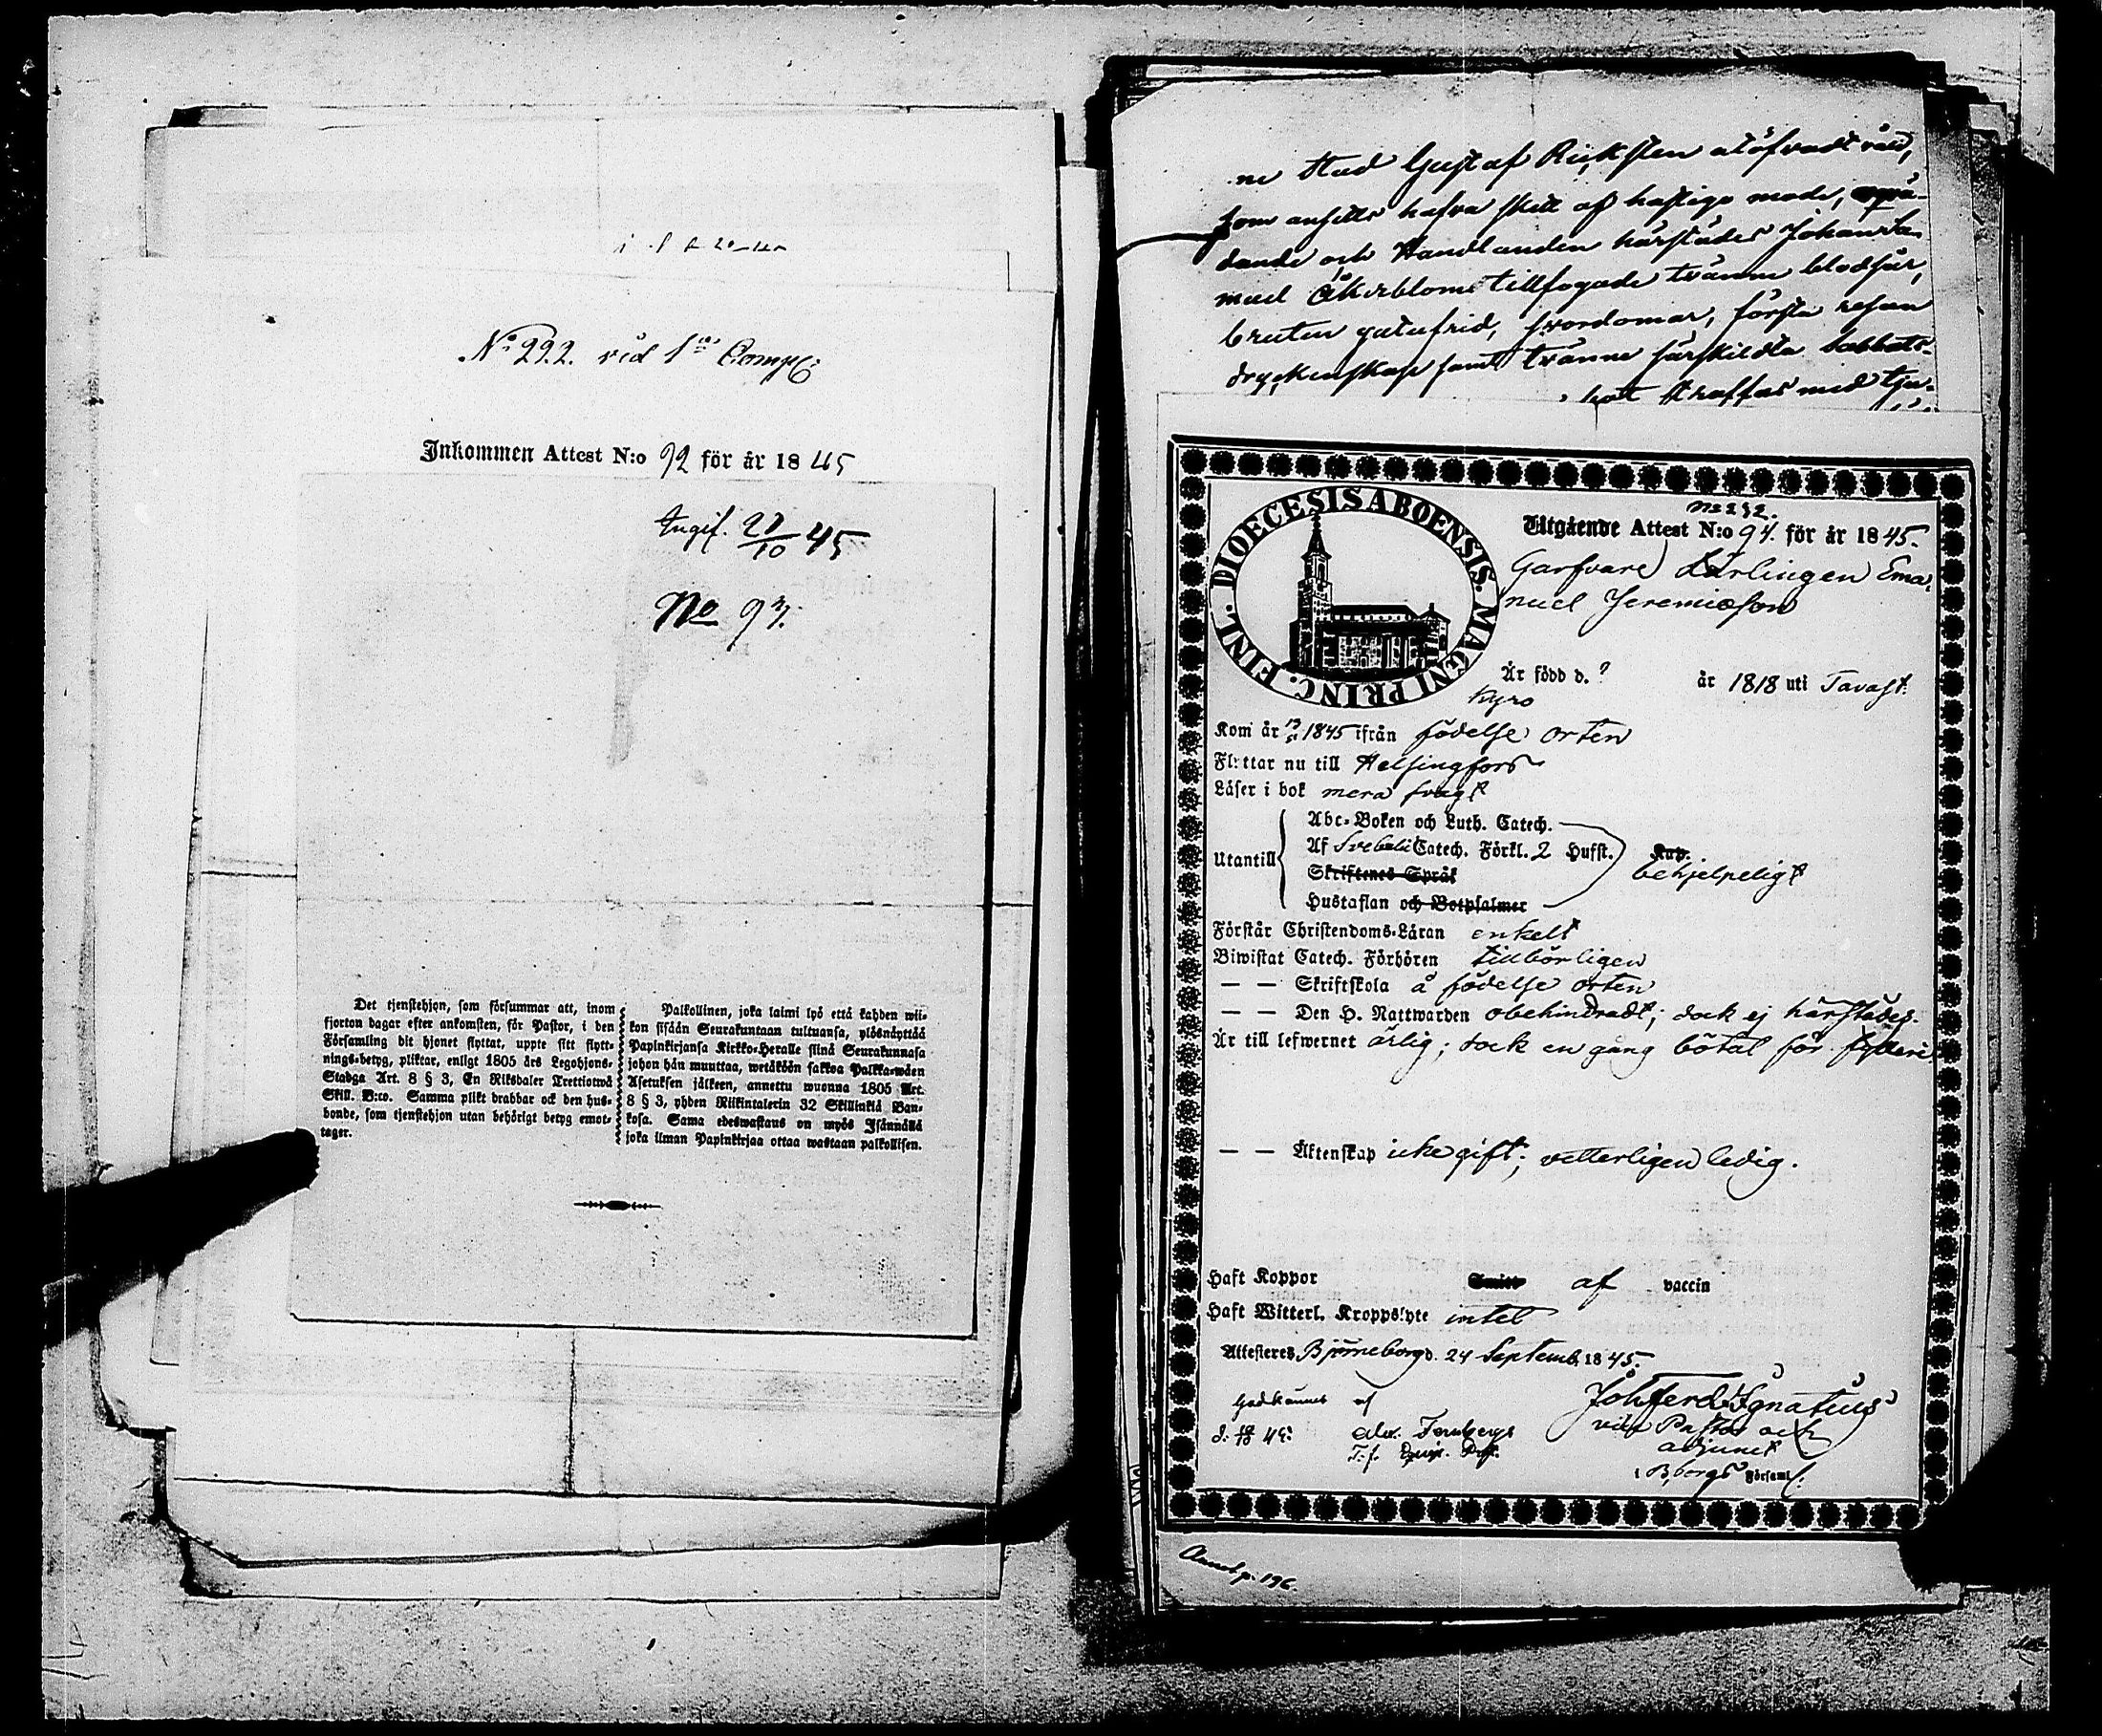 No 292. vid 1sta Comp:
Inkommen Attest N:o 92 för år 1845
Ingif. 27/10 45
No 93.
Det tjenstehjon, som försummar att, inom
fjorton dagar efter ankomsten, för Pastor, i den
Församling dit hjonet flyttat, uppte sitt flytt-
nings-betyg, pliktar, enligt 1805 års Legohjons-
Stadga Art. 8 § 3, En Riksdaler Trettiotwå
Skill. B:co. Samma plikt drabbar ock den hus-
bonde, som tjenstehjon utan behörigt betyg emot-
tager.
Palkollinen, joka laimi lyö että kahden wii-
kon sisään Seurakuntaan tultuansa, ylösnäyttää
Papinkirjansa Kirkko-Heralle siinä Seurakunnasa
johon hän muuttaa, wetäköön sakkoa Palkka-wäen
Asetuksen jälkeen, annettu wuonna 1805 Art.
8 § 3, yhden Riikintalerin 32 Skillinkiä Ban-
kosa. Sama edeswastaus on myös Isännällä
joka ilman Papinkirjaa ottaa wastaan palkollisen.
ne Stad Gustaf Rücksten utöfvadt våld,
som ansetts hafva skett af hastigt mode,
dande och Handlanden härstädes Johan Sa-
muel Åkerblom tillfogade tvänne blodsår,
bruten gatufrid, svordomar, första resan
dryckenskap samt tvänne särskildta Sabbats-
bot straffas med tju-
DIOECESIS ABOENSIS. MAGNI PRINC. FINL.
No 292.
Utgående Attest N:o 94. för år 1845.
Garfvare Lärlingen Ema-
nuel Jeremiæson
Är född d. ? år 1818 uti Tavast
kyro
Kom år 1845 ifrån födelse orten
Flyttar nu till Helsingfors
Läser i bok mera svagt
Utantill
Abc-Boken och Luth. Catech.
Af Svebelii Catech. Förkl. 2 Hufst. Kap.
Skriftenes Språk behjelpeligt
Hustaflan och Botpsalmer
Förstår Christendoms-Läran enkelt
Biwistat Catech. Förhören tillbörligen
— — Skriftskola å födelse orten
— — Den H. Nattwarden obehindradt; dock ej härstädes.
Är till lefwernet ärlig; dock en gång bötat för fylleri
— — Äktenskap icke gift; vetterligen ledig.
Haft Koppor Smitt af vaccin
Haft Witterl. Kroppslyte intet
Attesteres Björneborg d. 24 Septemb. 1845.
Godkännes af
Joh Ferd Ignatius
vice Pastor och
adjunct
i B,borgs Församl.
Alex. Fornbergs
T. f.
Annot p. 196.